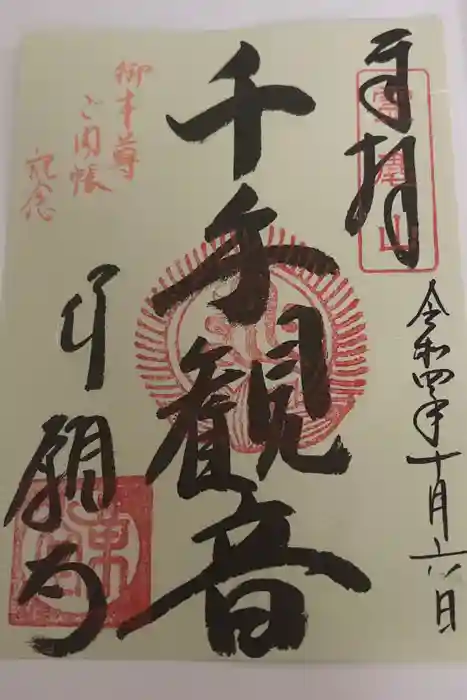 奉拝
令和四年十月六日
千手観音
御本尊
ご開帳
記念
行願寺